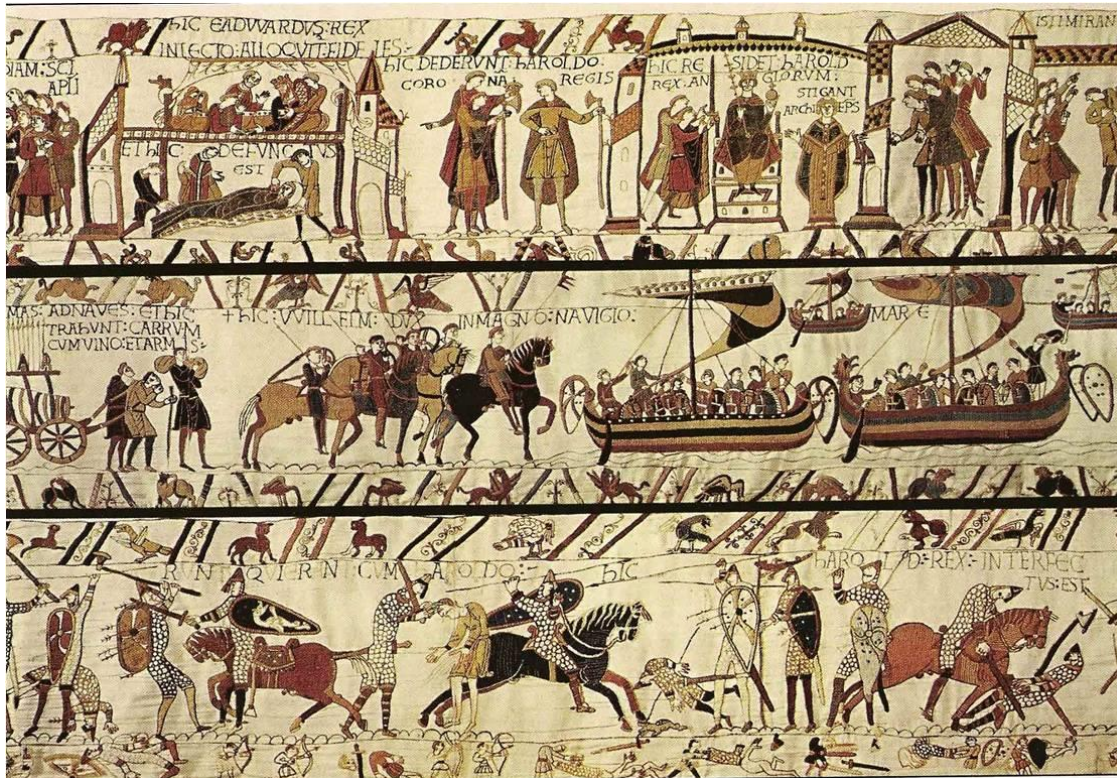 hIC EADVVARDVS: REX
IN LECTO: ALLOQVIT: FIDELES:
DIAM: SCI
APLI
ET hIC DEFVNCTVS
EST
hIC DEDERVNT: hAROLDO:
CORONA: REGIS
hIC RESIDET: hAROLD
REX: ANGLORVM:
STIGANT
ARChIEPS
ISTI MIRAN
MAS: AD NAVES: ET hIC
TRAhVNT: CARRVM
CVM VINO: ET ARMIS:
+ hIC: VVILLELM: DVX IN MAGNO: NAVIGIO:
MARE
RVNT QVI ERANT CVM hAROLDO:
hIC hAROLD: REX: INTERFEC
TVS: EST